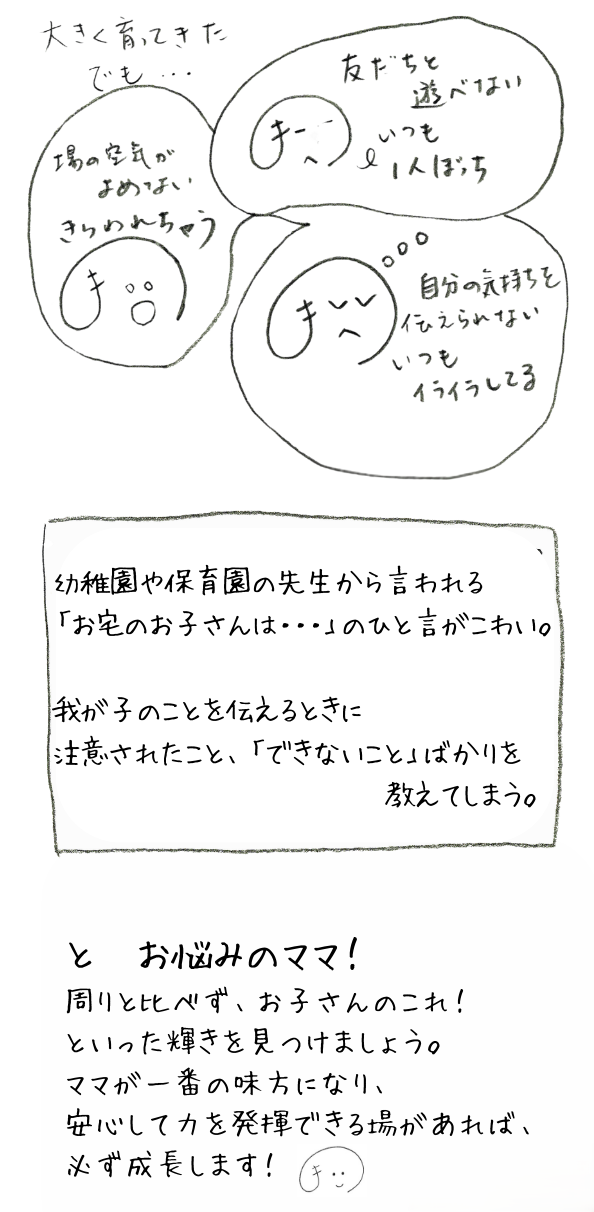 大きく育ってきた
でも・・・
友だちと
遊べない
いつも
1人ぼっち
場の空気が
よめない
きらわれちゃう
自分の気持ちを
伝えられない
いつも
イライラしてる
幼稚園や保育園の先生から言われる
「お宅のお子さんは・・・」のひと言がこわい。
我が子のことを伝えるときに
注意されたこと、「できないこと」ばかりを
教えてしまう。
と　お悩みのママ!
周りと比べず、お子さんのこれ!
といった輝きを見つけましょう。
ママが一番の味方になり、
安心して力を発揮できる場があれば、
必ず成長します!